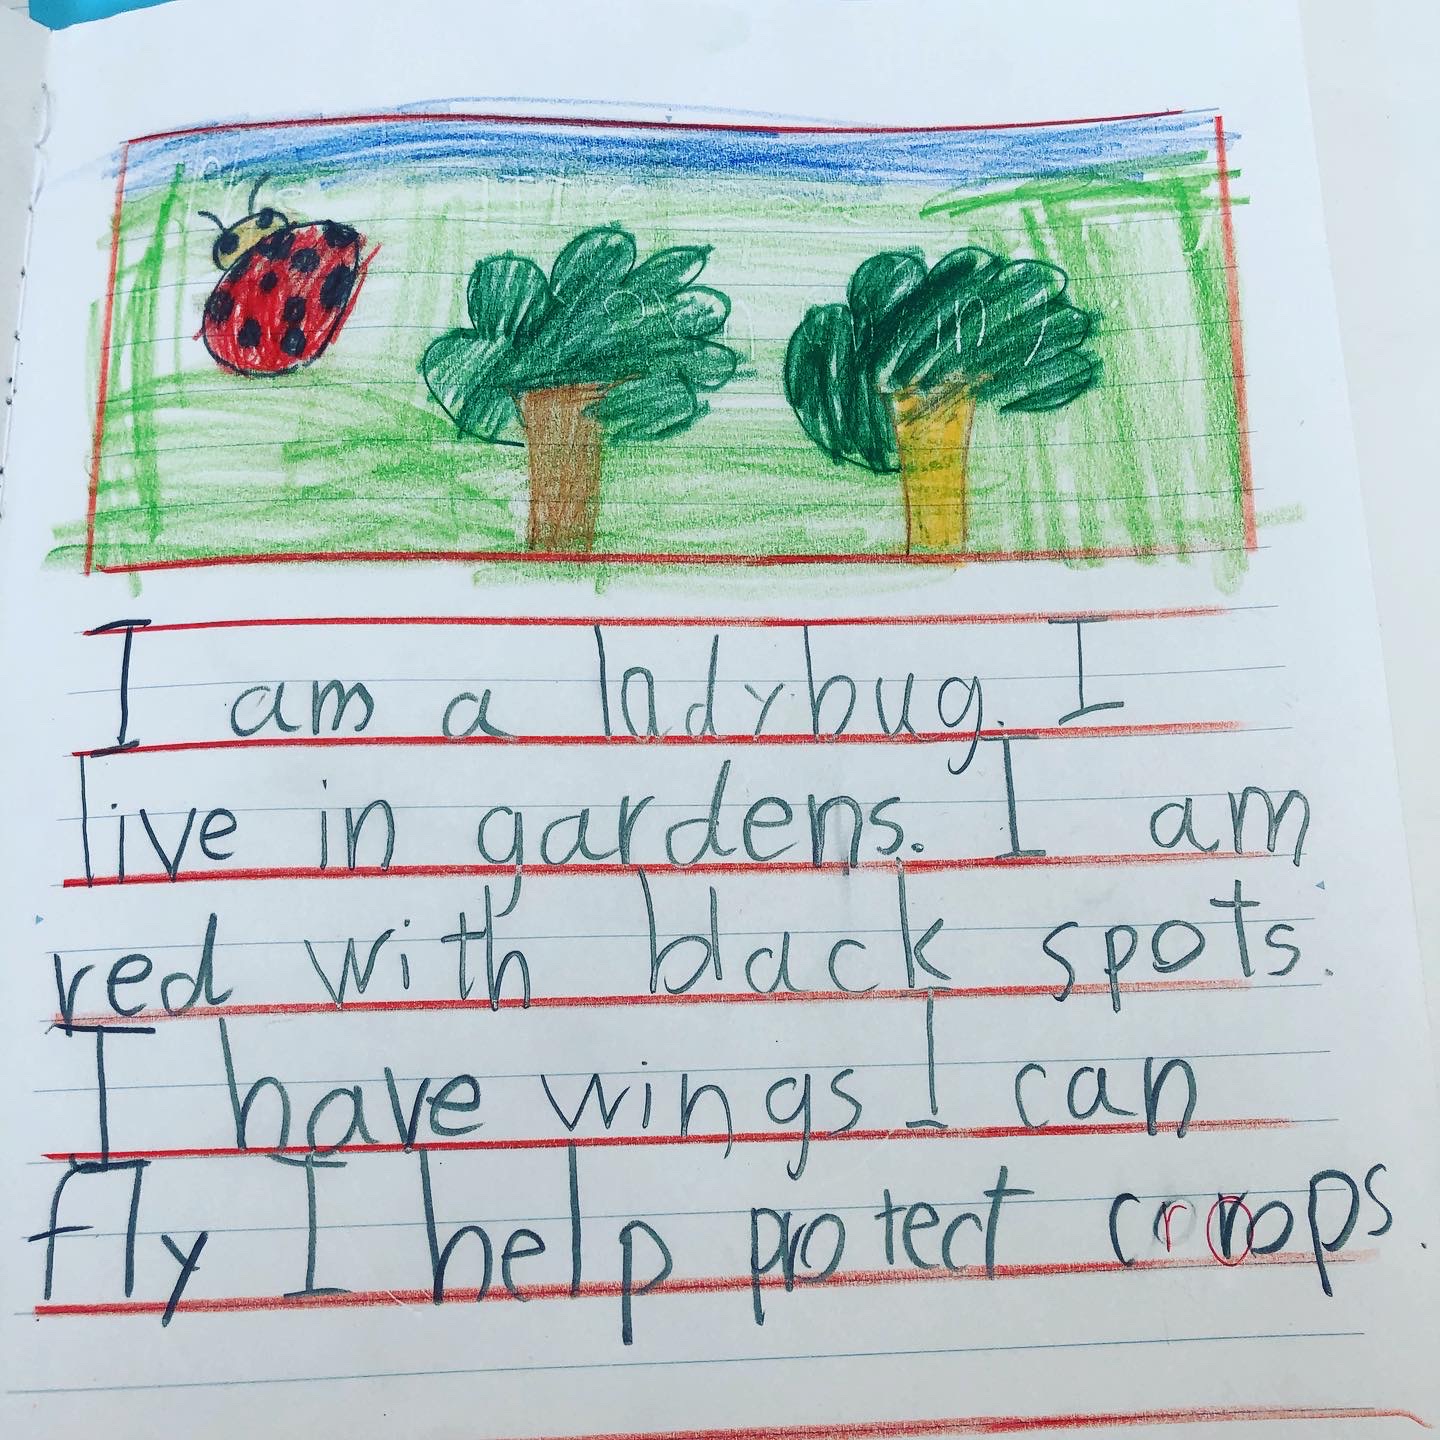 I am a ladybug. I
live in gardens. I am
red with black spots.
I have wings I can
fly I help protect crops.